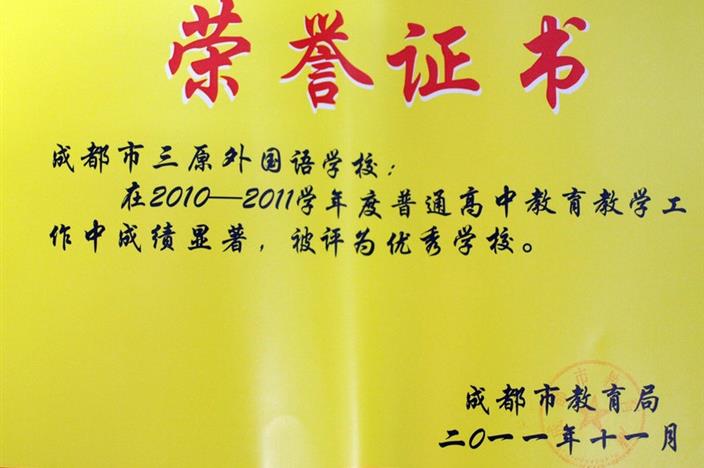 荣誉证书
成都市三原外国语学校：
在2010—2011学年度普通高中教育教学工
作中成绩显著，被评为优秀学校。
成都市教育局
二〇一一年十一月